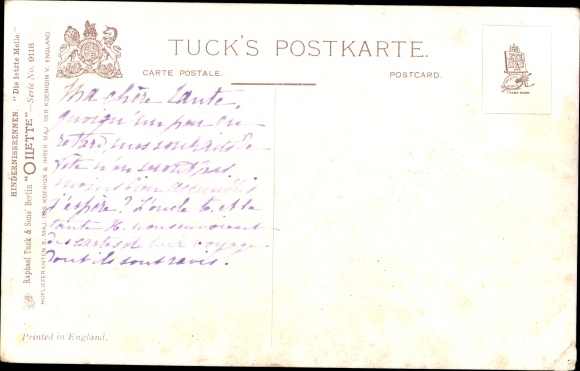 TUCK'S POSTKARTE.
CARTE POSTALE.
POSTCARD.
TRADE MARK
HINDERNISSRENNEN. "Die letzte Meile."
Raphael Tuck & Sons' Berlin "OILETTE" Serie No. 9118
HOFLIEFERANTEN S. MAJ. DES KOENIGS & IHRER MAJ. DER KOENIGIN V. ENGLAND.
Ma chère tante,
quoiqu'un peu en
retard, mes souhaits de
fête n'en seront pas
moins bien accueillis
j'espère? L'oncle to. et la
tante H. nous envoient
des cartes de leur voyage
dont ils sont ravis.
Printed in England.